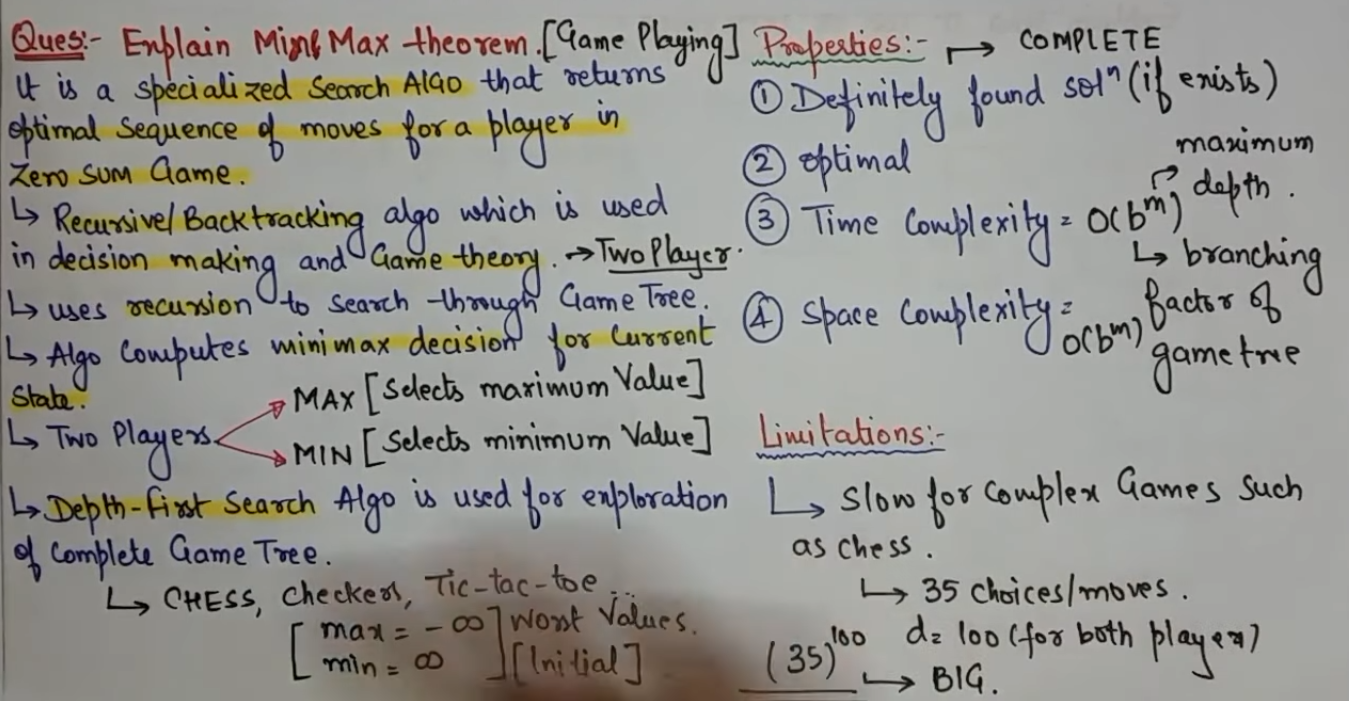 Ques:- Explain Min Max theorem. [Game Playing]
It is a specialized search Algo that returns
optimal sequence of moves for a player in
Zero sum Game.
↳ Recursive/Backtracking algo which is used
in decision making and Game theory. → Two Player.
↳ uses recursion to search through Game Tree.
↳ Algo computes minimax decision for current
state.
↳ Two Players
MAX [Selects maximum Value]
MIN [Selects minimum Value]
↳ Depth-first search Algo is used for exploration
of complete Game Tree.
↳ CHESS, Checkers, Tic-tac-toe...
[ max = -∞ ] Worst Values.
[ min = ∞ ] [Initial]
Properties:- → COMPLETE
① Definitely found solⁿ (if exists)
② optimal
③ Time Complexity = O(b^m)
maximum
depth.
↳ branching
factor of
game tree
④ Space Complexity =
O(b^m)
Limitations:-
↳ Slow for complex Games such
as chess.
↳ 35 choices/moves.
d = 100 (for both player)
(35)^100 ↳ BIG.